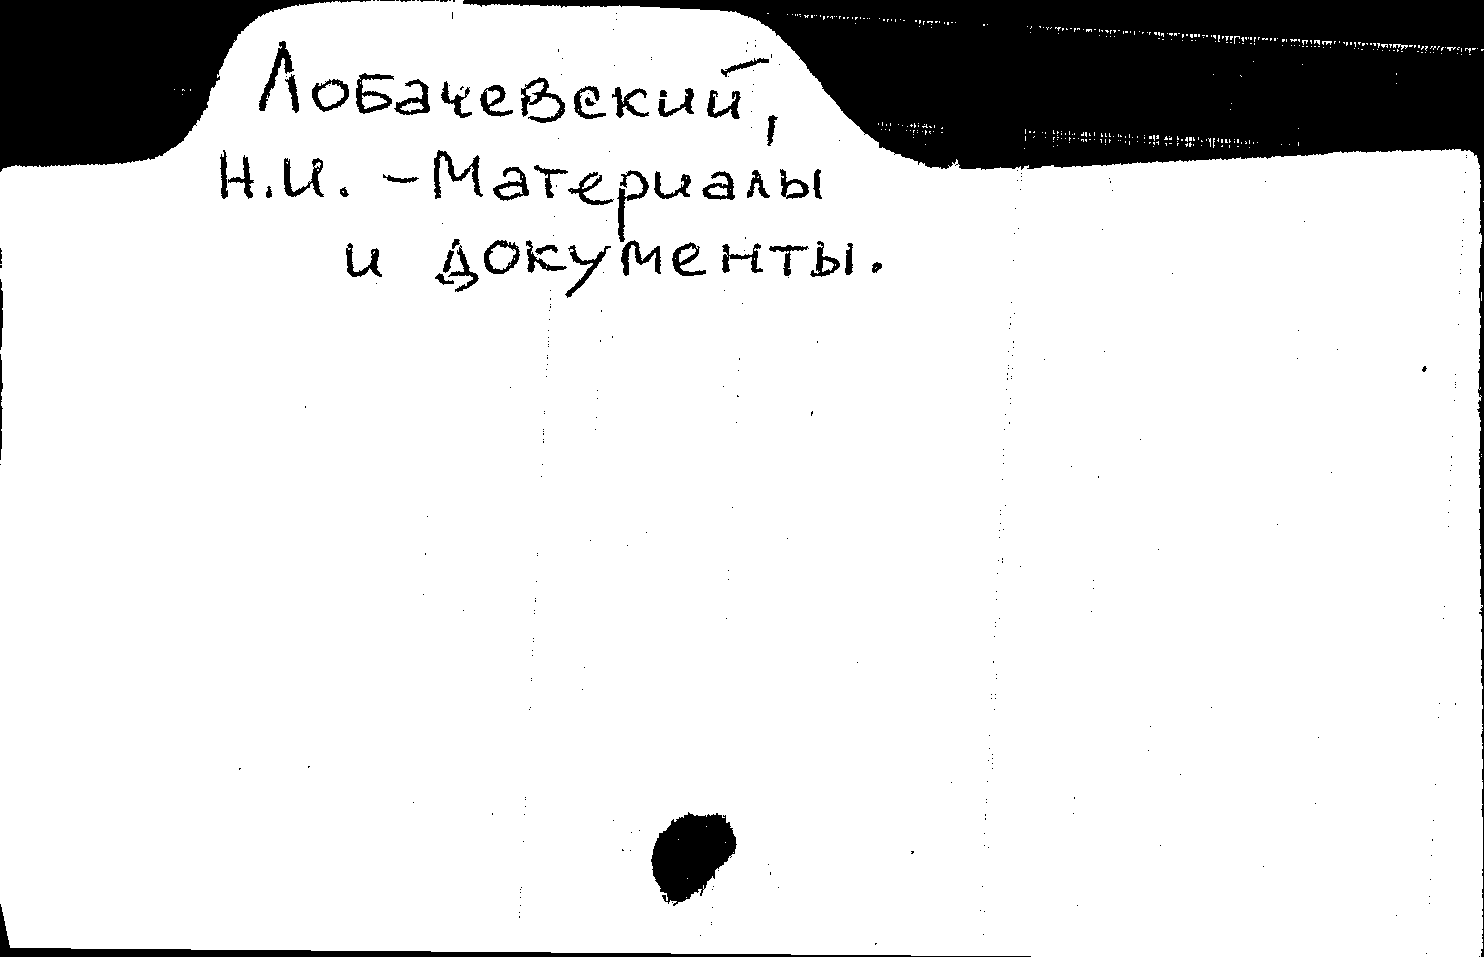 Лобачевский,
Н.И. - Материалы
и документы.